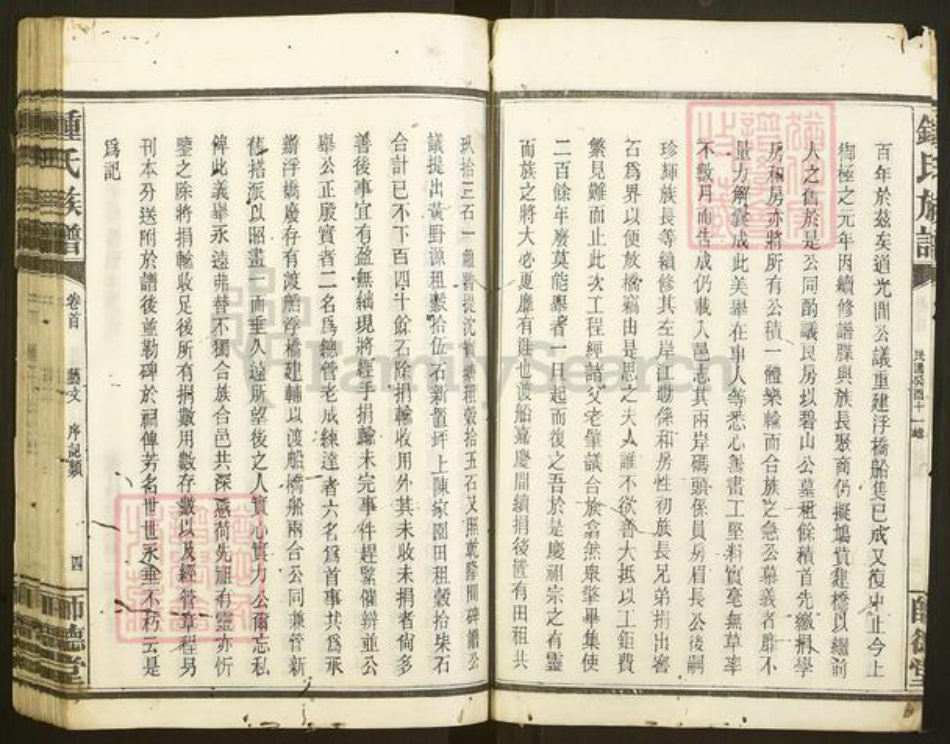 鍾氏族譜
百年於茲矣道光間公議重建浮橋船隻已成又復中止今上
御極之元年因續修譜牒與族長聚商仍擬鳩貲建橋以繼前
人之舊於是公同酌議良房以碧山公墓租餘積首先繳捐學
房和房亦將所有公積一體樂輸而合族之急公慕義者靡不
量力解囊成此美舉在事人等悉心籌畫工堅料實毫無草率
不數月而告成仍載入邑志其兩岸碼頭係員房眉長公後嗣
珍輝族長等續修其左岸江勘係和房性初族長兄弟捐出窖
石為界以便放橋竊由是思之夫人誰不欲善大抵以工鉅費
繁見難而止此次工程經諸父老肇議合族翕然眾擎畢集使
二百餘年廢莫能舉者一旦起而復之吾於是慶祖宗之有靈
而族之將大必更靡有涯也渡船嘉慶間續捐後置有田租共
玖拾三石一 租穀拾五石又照乾隆間碑續公
議提出黃野源租穀拾伍石新置坪上陳家園田租穀拾柒石
合計已不下百四十餘石除捐輸收用外其未收未捐者尚多
善後事宜有盈無絀現將經手捐輸未完事件趕緊催辦並公
舉公正殷實者二名為總管老成練達者六名為首事共為承
辦浮橋廢存有渡船浮橋建輔以渡船橋船兩合公同兼管新
舊搭派以昭畫一而垂久遠所望後之人實心實力公爾忘私
俾此義舉永遠弗替不獨合族合邑共深感荷先祖有靈亦忻
鑒之除將捐輸收足後所有捐數用數存數以及經管章程另
刊本分送附於譜後並勒碑於祠俾芳名世世永垂不朽云是
為記
鍾氏族譜
卷首
藝文
序記類
四
師德堂
師德堂
FamilySearch